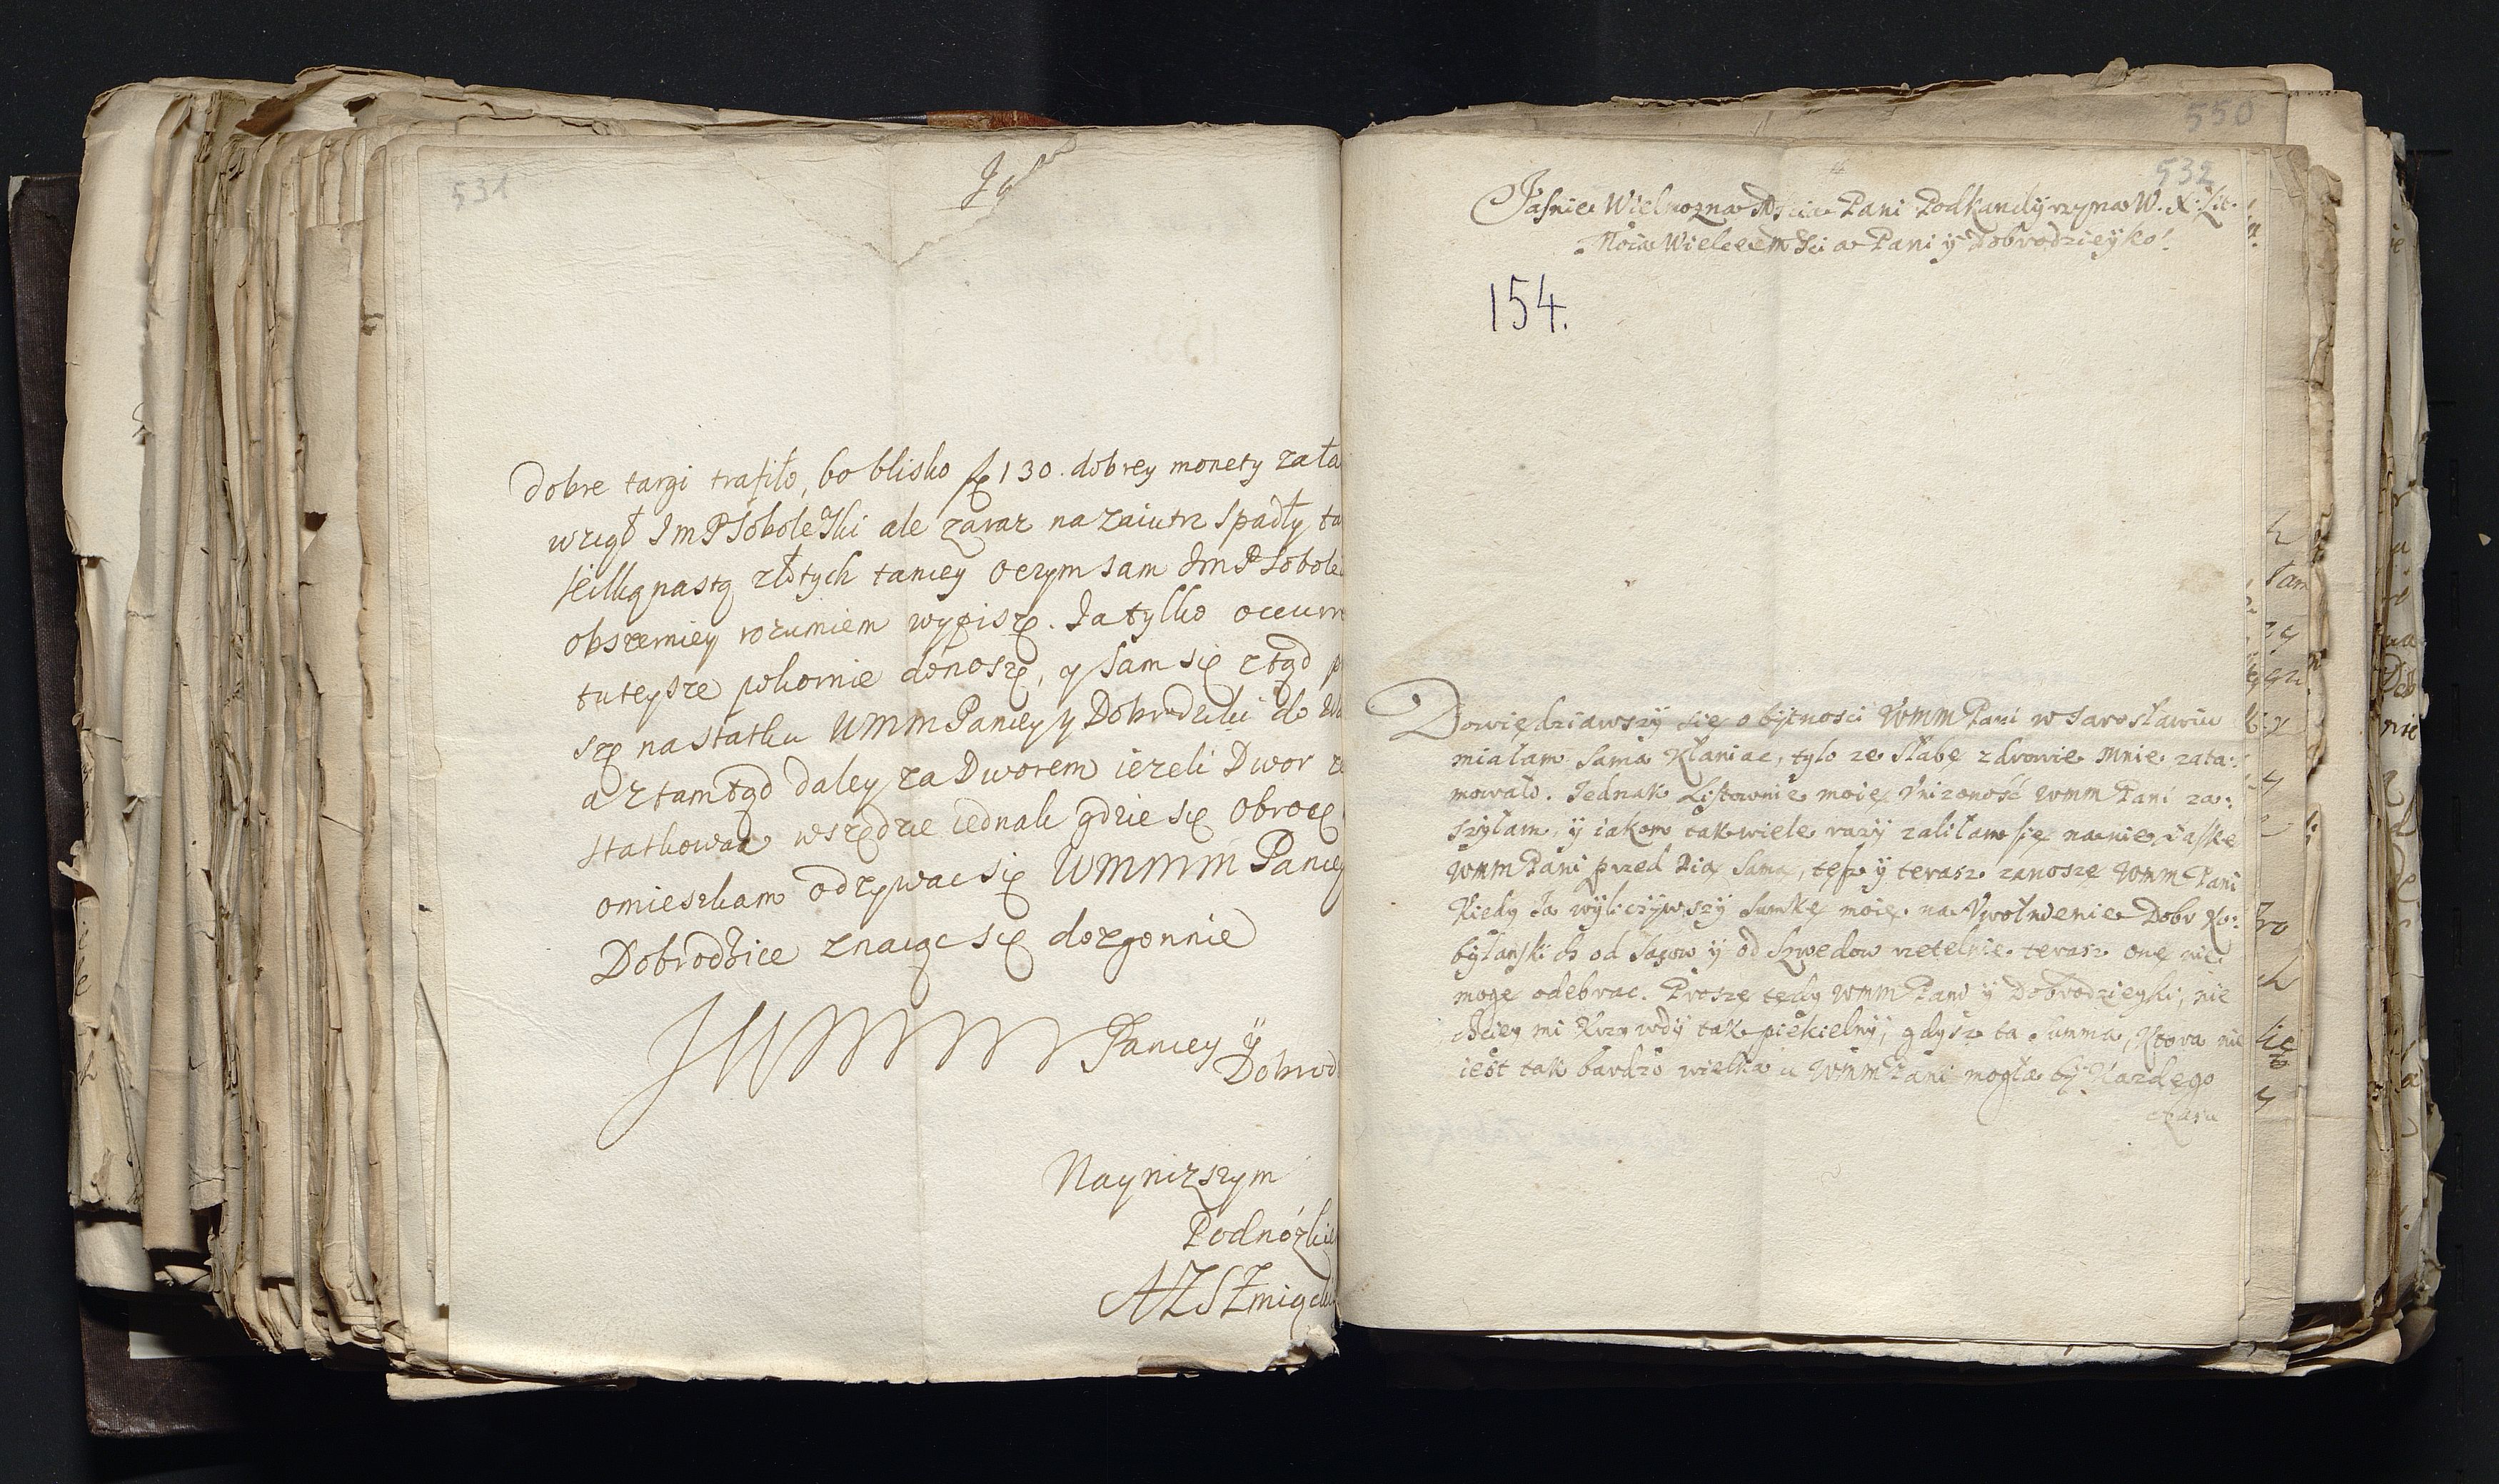 531
dobre targi trafiło, bo blisko 130. dobrey monety zała
wziął Im P Sobolewski ale zaraz nazaiutrz spadły ta
kilkąnastą złotych taniey oczym sam Im P Sobole
obszerniey rozumiem wypisze. Ia tylko occurr
tuteysze pokornie donoszę, y sam się ztąd p
szę nastatku WMM Paniey y Dobrodziki do
a ztamtąd daley za Dworem ieżeli Dwor
statkować wszędzie iednak gdzie się obrocę
omieszkam odzywac się WMMM Paniey
Dobrodźice znaiąc się dozgonnie
JWMMM Paniey ÿ
Dobrod
Nayniższym
Podnóżkie
AZS Żmiga
550
532
Jasnie Wielmozna Mscia Pani Podkanclÿrzyna W. X: Lit.
Moia Wielce Mscia Pani ÿ Dobrodzieyko!
154.
Dowiedziawszÿ się o bÿtnosci WMM Pani w Jarosławiu
miałam sama kłaniac, tylo ze słabe zdrowie mnie zata:
mowało. Jednak Listownie moię Vnizoność WMM Pani za:
szyłam, ÿ iakom tak wiele razÿ zaliłam się na nie łaskę
WMM Pani przed Nią samą, tesz ÿ terasz zanoszę WMM Pani
Kiedy Ja wÿliczÿwszÿ sumkę moię na Vwolnienie Dobr Ko:
bÿlanskich od Sasow ÿ od Szwedow rzetelnie terasz onę nie
mogę odebrac. Proszę tedy WMM Pani ÿ Dobrodzieyki, nie
chciey mi Krzywdÿ tak piekielnÿ, gdysz ta summa, Ktora nie
iest tak bardzo wielka u WMM Pani mogła bÿ Kazdego
czasu